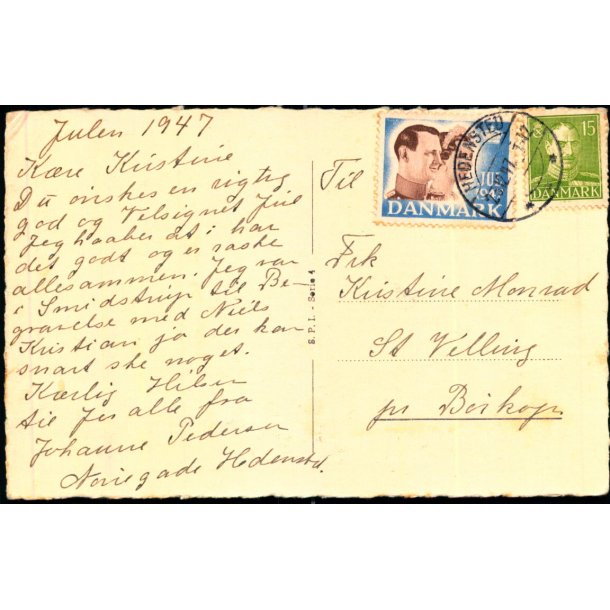 Julen 1947
Kære Kristine
Du ønskes en rigtig
god og Velsignet Jul
Jeg haaber at i har
det godt og er raske
allesammen. Jeg var
i Smidstrup til Be-
gravelse med Niels
Kristian ja der kan
snart ske noget.
Kærlig Hilsen
til Jer alle fra
Johanne Pedersen
Nørregade Hedensted.
S. P. I. - Serie 4
Til
DANMARK
HEDENSTED
15
DANMARK
Frk
Kristine Monrad
St Velling
pr Börkop